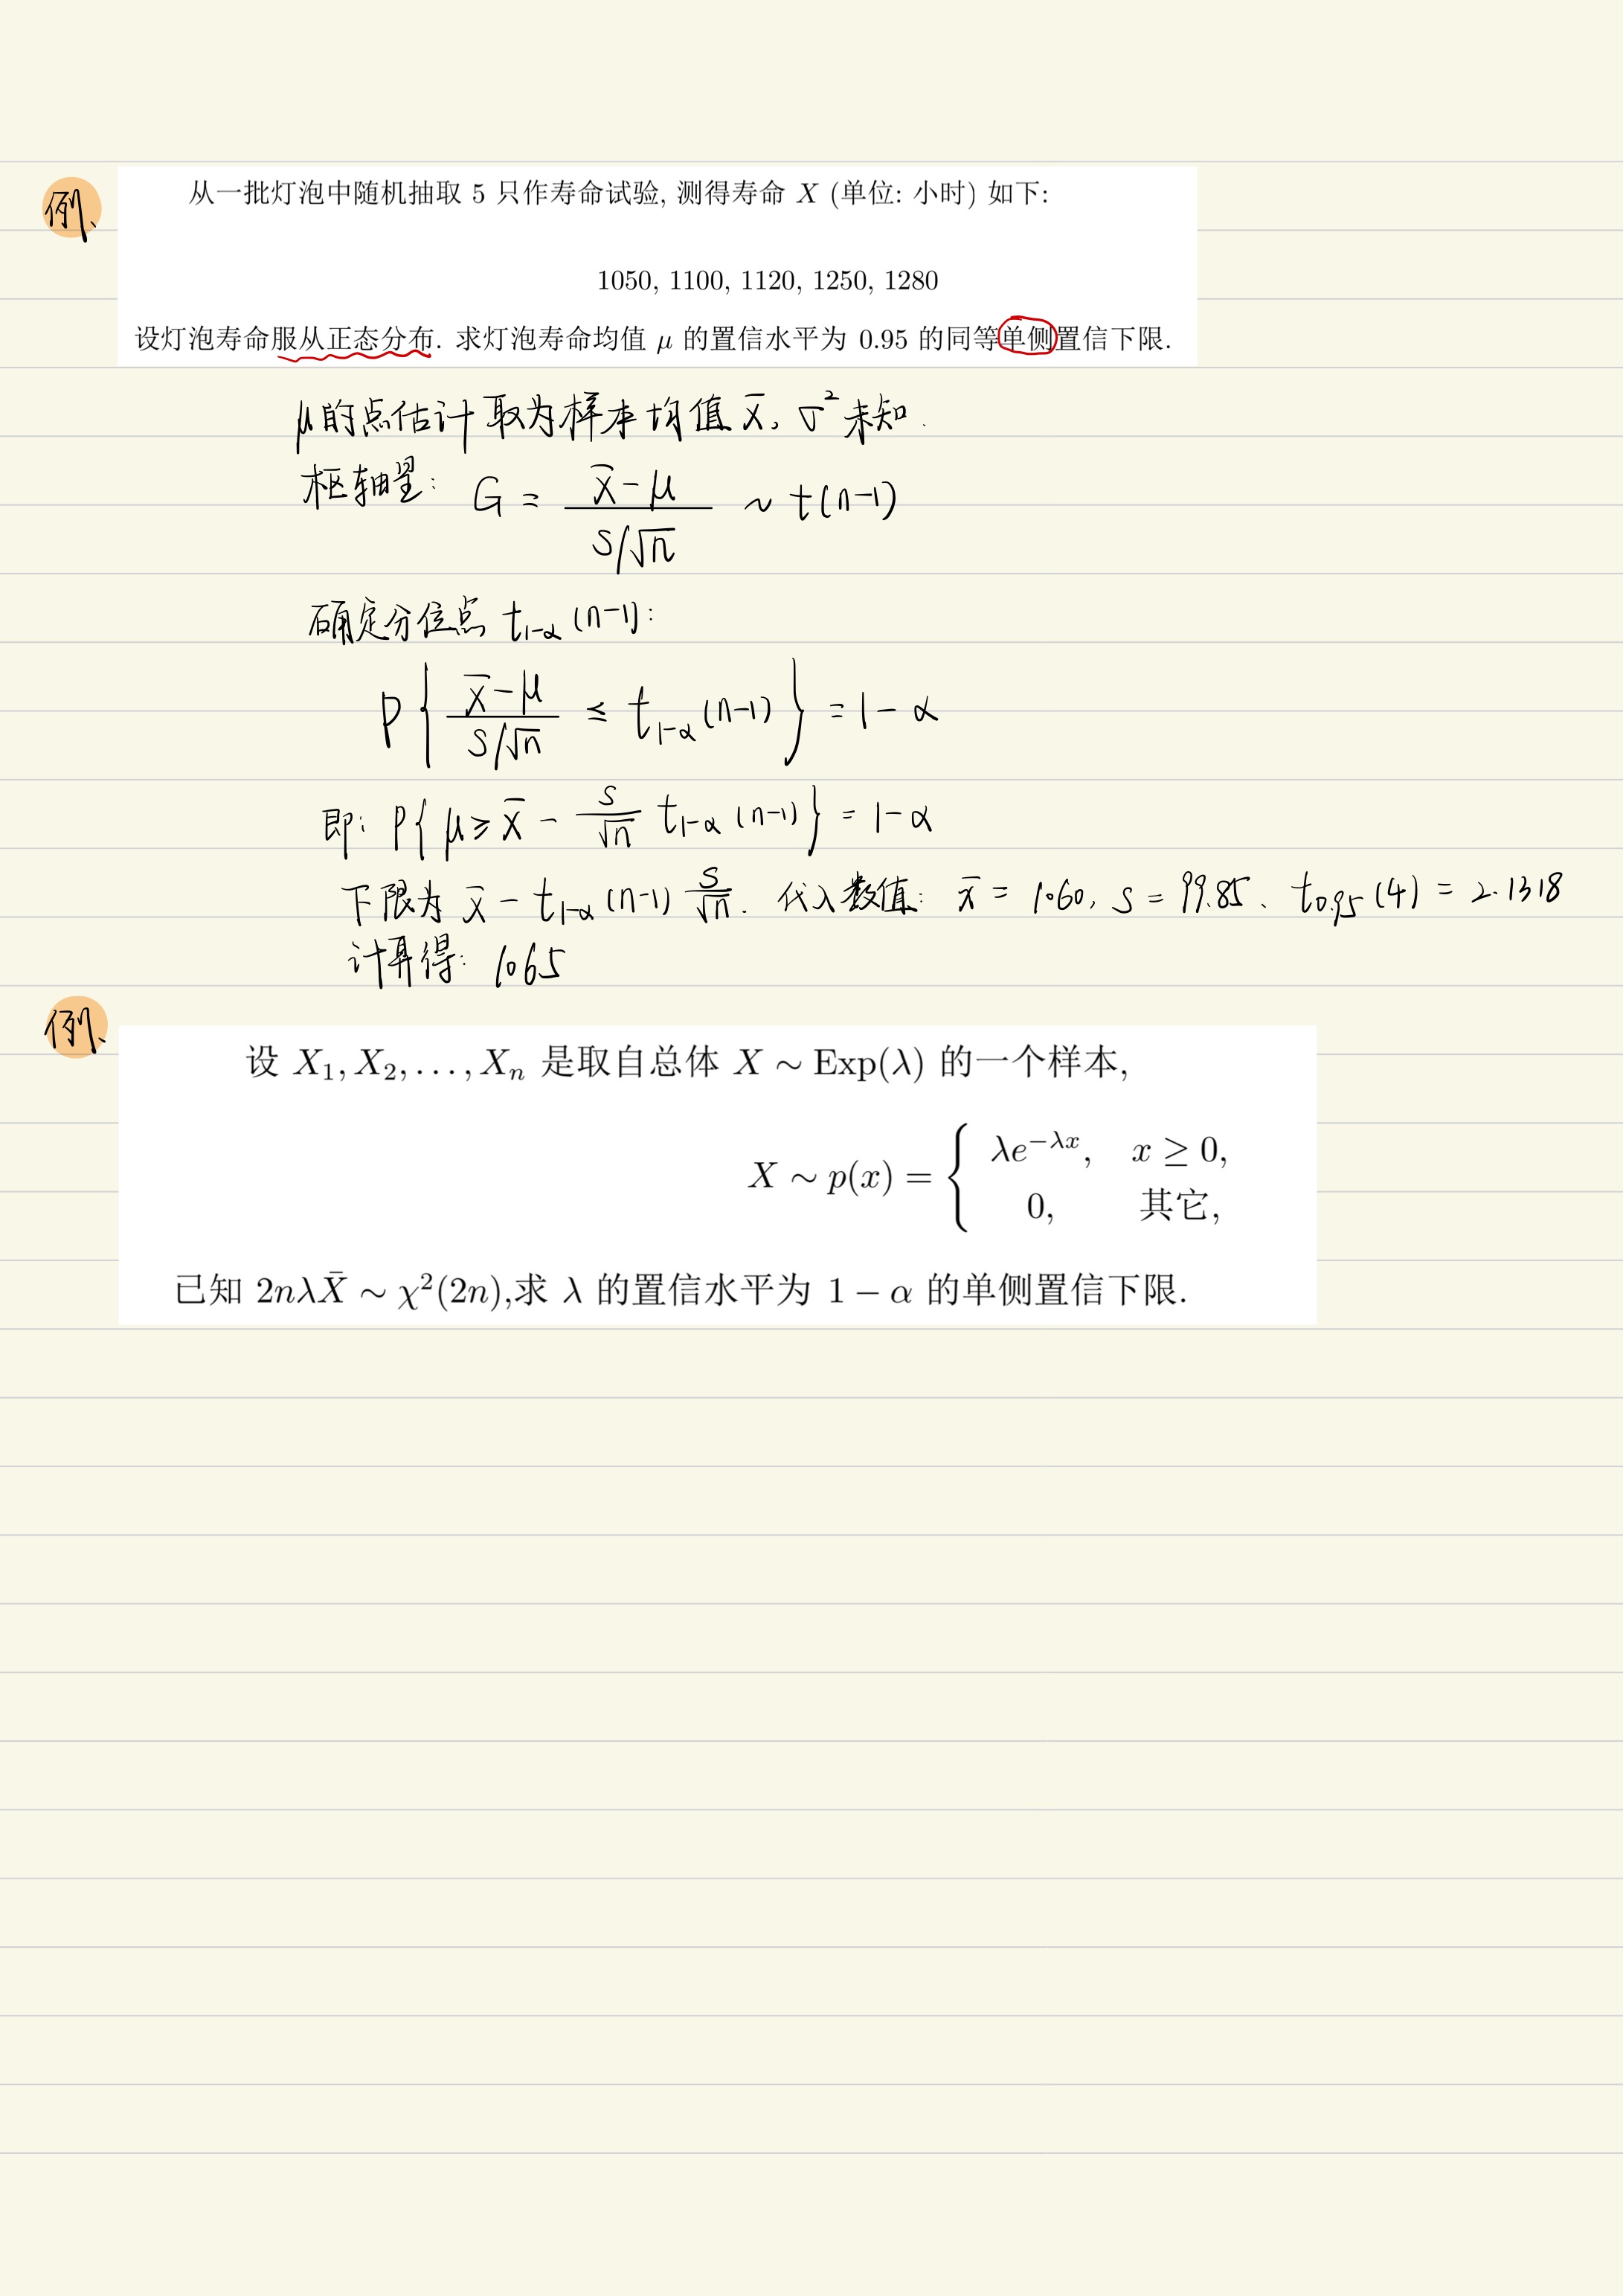 例、
从一批灯泡中随机抽取 5 只作寿命试验, 测得寿命 X (单位: 小时) 如下:
1050, 1100, 1120, 1250, 1280
设灯泡寿命服从正态分布. 求灯泡寿命均值 μ 的置信水平为 0.95 的同等单侧置信下限.
μ的点估计取为样本均值 x̄, σ² 未知.
枢轴量: G = (x̄-μ)/(s/√n) ~ t(n-1)
确定分位点 t_{1-α}(n-1):
P{ (x̄-μ)/(s/√n) ≤ t_{1-α}(n-1) } = 1-α
即: P{ μ ≥ x̄ - s/√n t_{1-α}(n-1) } = 1-α
下限为 x̄ - t_{1-α}(n-1) s/√n. 代入数值: x̄ = 1060, s = 99.85、t_{0.95}(4) = 2.1318
计算得: 1065
例、
设 X₁, X₂, . . . , Xₙ 是取自总体 X ∼ Exp(λ) 的一个样本,
X ∼ p(x) = { λe^{−λx}, x ≥ 0,
0, 其它,
已知 2nλX̄ ∼ χ²(2n),求 λ 的置信水平为 1 − α 的单侧置信下限.